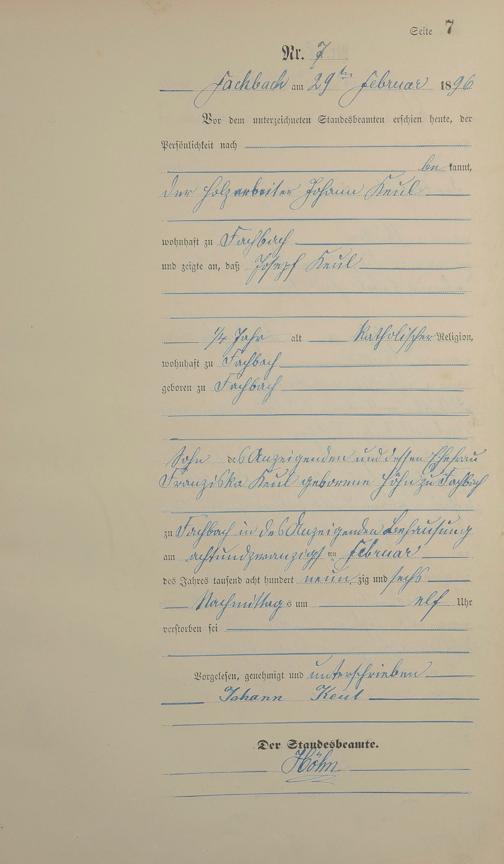 Seite 7
Nr. 7
Fachbach am 29ten Februar 1896
Vor dem unterzeichneten Standesbeamten erschien heute, der
Persönlichkeit nach
be kannt,
der Holzarbeiter Johann Keul
wohnhaft zu Fachbach
und zeigte an, daß Josepf Keul
1/4 Jahr alt katholischer Religion,
wohnhaft zu Fachbach
geboren zu Fachbach
Sohn des Anzeigenden und dessen Ehefrau
Franziska Keul geborene Höhn zu Fachbach
zu Fachbach in des Anzeigenden Behausung
am achtundzwanzigsten Februar
des Jahres tausend acht hundert neun zig und sechs
Nachmittags um elf Uhr
verstorben sei
Vorgelesen, genehmigt und unterschrieben
Johann Keul
Der Standesbeamte.
Höhn